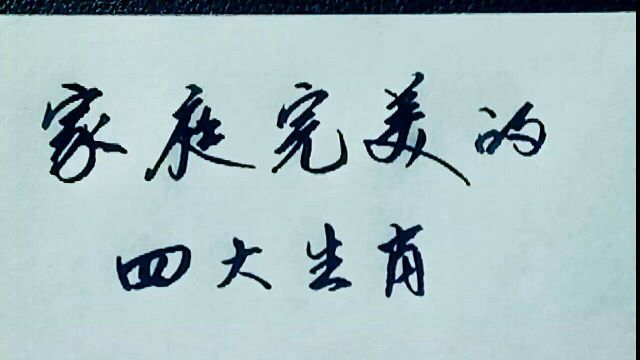 家庭完美的
四大生肖